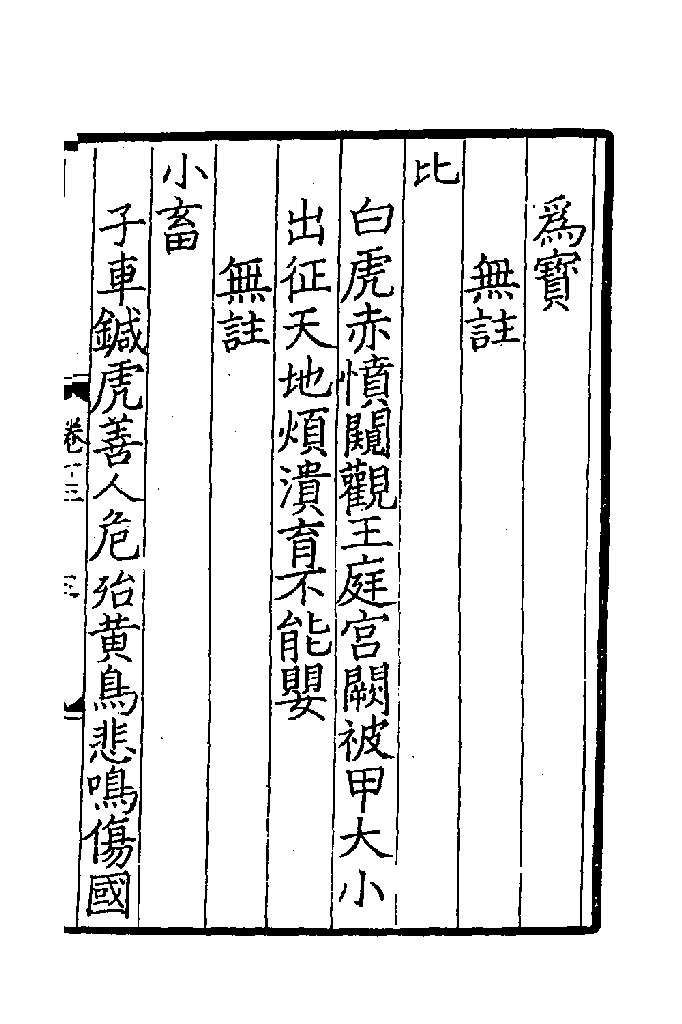 爲寳
無註
比
白虎赤憤闚觀王庭宫闕被甲大小
出征天地煩潰育不能嬰
無註
小畜
子車鍼虎善人危殆黄鳥悲鳴傷國
卷